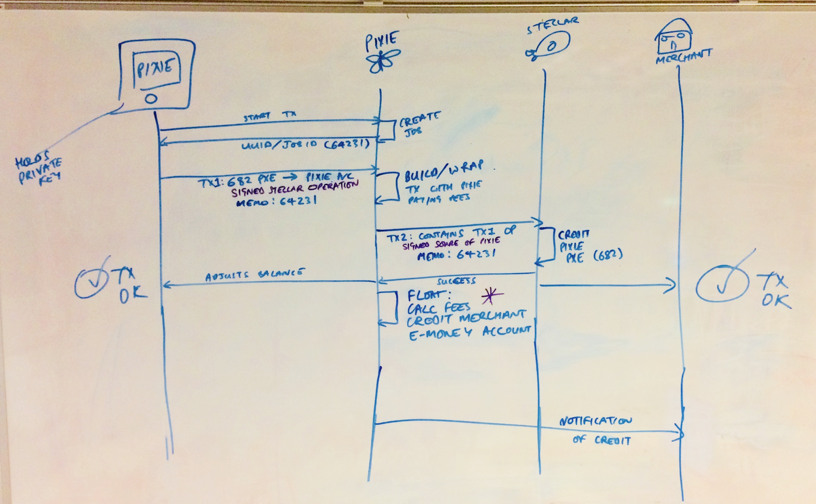 STELLAR
PIXIE
PIXIE
MERCHANT
HOLDS
PRIVATE
KEY
START TX
CREATE
JOB
UUID/JOB ID (64231)
TX1: 682 PXE → PIXIE A/C
SIGNED STELLAR OPERATION
MEMO: 64231
BUILD/WRAP
TX WITH PIXIE
PAYING FEES
TX2: CONTAINS TX1 OP
SIGNED SOURCE OF PIXIE
MEMO: 64231
CREDIT
PIXIE
PXE (682)
TX
OK
ADJUSTS BALANCE
SUCCESS
TX
OK
FLOAT:
CALC FEES
CREDIT MERCHANT
E-MONEY ACCOUNT
NOTIFICATION
OF CREDIT